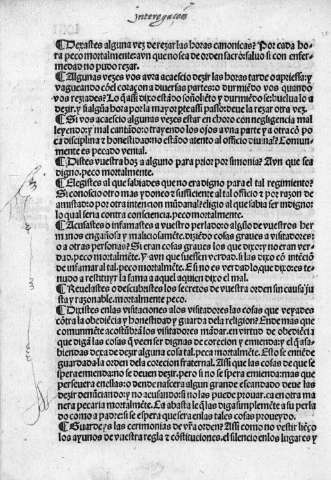 Interrogaciones
¶ Dexastes alguna vez de rezar las horas canonicas? Por cada ho-
ra peco mortalmente: avn que no sea de ordẽ sacro: saluo si con enfer-
medad no pudo rezar.
¶ Algunas vezes vos avra acaescido dezir las horas tarde o apriessa: y
vagueando cõ el coraçon a diuersas partes: o durmiẽdo vos quando
vos reziades? Lo q̃ assi dixo estãdo soñoliẽto y durmiẽdo se: buelua lo a
dezir. y si alguna hora por la mayor pte assi passo: deue la rezar otra vez.
¶ Si vos acaescio algunas vezes estar en choro con negligencia mal
leyendo: y mal cantãdo: o trayendo los ojos a vna parte y a otra cõ po
ca disciplina t honestidad: no estãdo atento al officio diuinal? Comun-
mente es pecado venial.
¶ Distes vuestra boz a alguno para prior por simonia? Avn que sea
digno. peco mortalmente.
¶ Elegistes al que sabiades que no era digno para el tal regimiento?
Si conoscio otro mas ydoneo t sufficiente al tal officio t por razon de
amistad: o por otra intencion mũdana? eligio al que sabia ser indigno:
lo qual seria contra consciencia. peco mortalmente.
¶ Acusastes o infamastes a vuestro perlado: o algũo de vuestros her
manos engañosa y maliciosamẽte. diziẽdo cosas graues a visitadores:
o a otras personas? Si eran cosas graues los que dixo: y no eran ver-
dad. peco mortalmẽte. Y avn que fuessen verdad. si las dixo cõ intẽciõ
de infamar al tal. peco mortalmẽte. E si no es verdad lo que dixo: es te-
nudo a restituyr la fama a aquel a quien dixo el mal.
¶ Reuelastes o descubristes los secretos de vuestra orden sin causa ju
sta y razonable. mortalmente peco.
¶ Dixistes en las visitaciones a los visitadores las cosas que veyades
cõtra la obediẽcia y honestidad y guarda de la religion? Ende mas que
comunmẽte acostũbrã los visitadores mãdar. en virtud de obediẽci a
que digã las cosas q̃ veen ser dignas de corecion y enmienda: y el q̃ a sa-
biendas dexa de dezir alguna cosa tal. peca mortalmẽte. Esto se enniẽde
guardada la orden de la corecion fraternal. Assi que las cosas de que se
spera emienda no se deuen dezir. pero si no se spera emienda mas que
perseuera en ellas: o dende nascera algun grande escandado deue las
dezir denũciando: y no acusando: si no las puede prouar. ca en otra ma
nera pecaria mortalmẽte. E a abasta le q̃ las diga simplemẽte a su perla
do como a padre: si se espera quesera en las tales cosas proueydo.
¶ Guardez las cerimonias de vr̃a orden? Assi como no vestir liẽço
los ayunos de vuestra regla t cõstituciones. el silencio en los lugares y